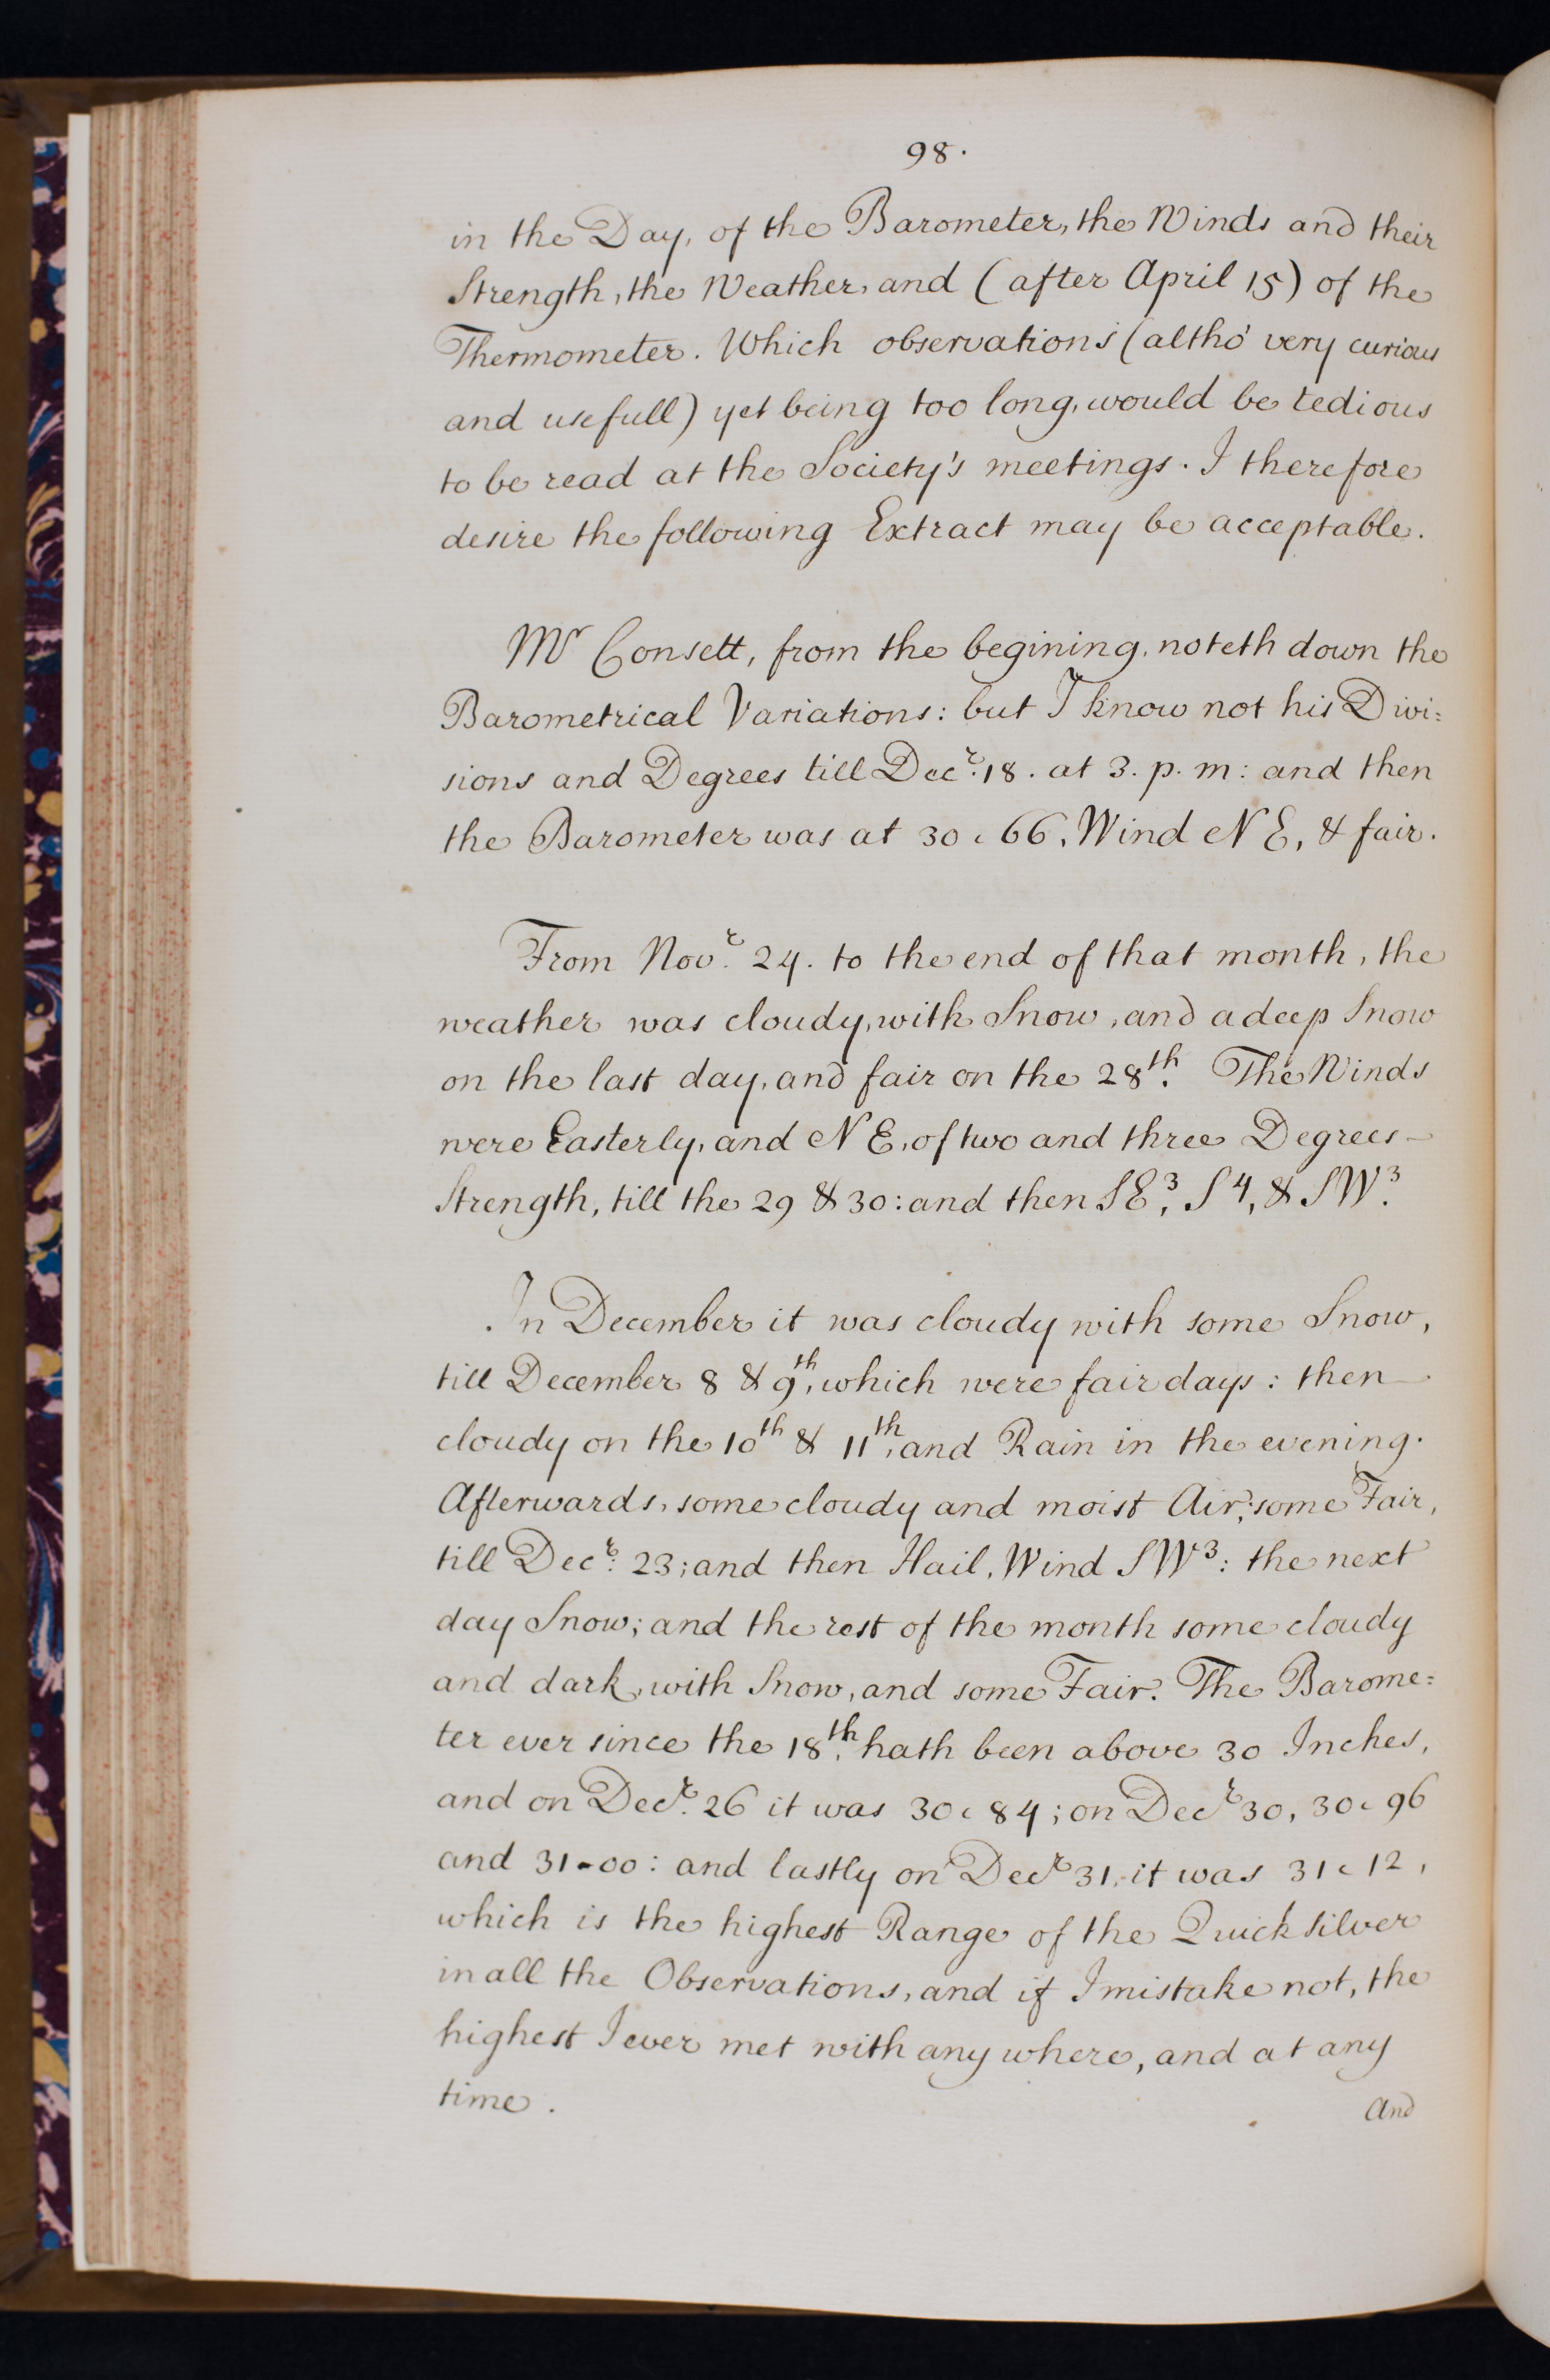 98.
in the Day, of the Barometer, the Winds and their
Strength, the Weather, and (after April 15) of the
Thermometer. Which observations (altho' very curious
and usefull) yet being too long, would be tedious
to be read at the Society's meetings. I therefore
desire the following Extract may be acceptable.
Mr Consett, from the begining, noteth down the
Barometrical Variations: but I know not his Divi=
sions and Degrees till Decr. 18. at 3. p. m: and then
the Barometer was at 30 c 66, Wind N E, & fair.
From Novr. 24. to the end of that month, the
weather was cloudy, with Snow, and a deep Snow
on the last day, and fair on the 28th. The Winds
were Easterly, and N E, of two and three Degrees
Strength, till the 29 & 30: and then S E 3, S 4, & S W 3.
In December it was cloudy with some Snow,
till December 8 & 9th, which were fair days: then
cloudy on the 10th & 11th, and Rain in the evening.
Afterwards, some cloudy and moist Air; some Fair,
till Decr. 23; and then Hail, Wind S W 3: the next
day Snow; and the rest of the month some cloudy
and dark, with Snow, and some Fair. The Barome=
ter ever since the 18th. hath been above 30 Inches,
and on Decr. 26 it was 30 c 84; on Decr 30, 30 c 96
and 31-00: and lastly on Decr 31, it was 31 c 12,
which is the highest Range of the Quicksilver
in all the Observations, and if I mistake not, the
highest I ever met with any where, and at any
time.
And